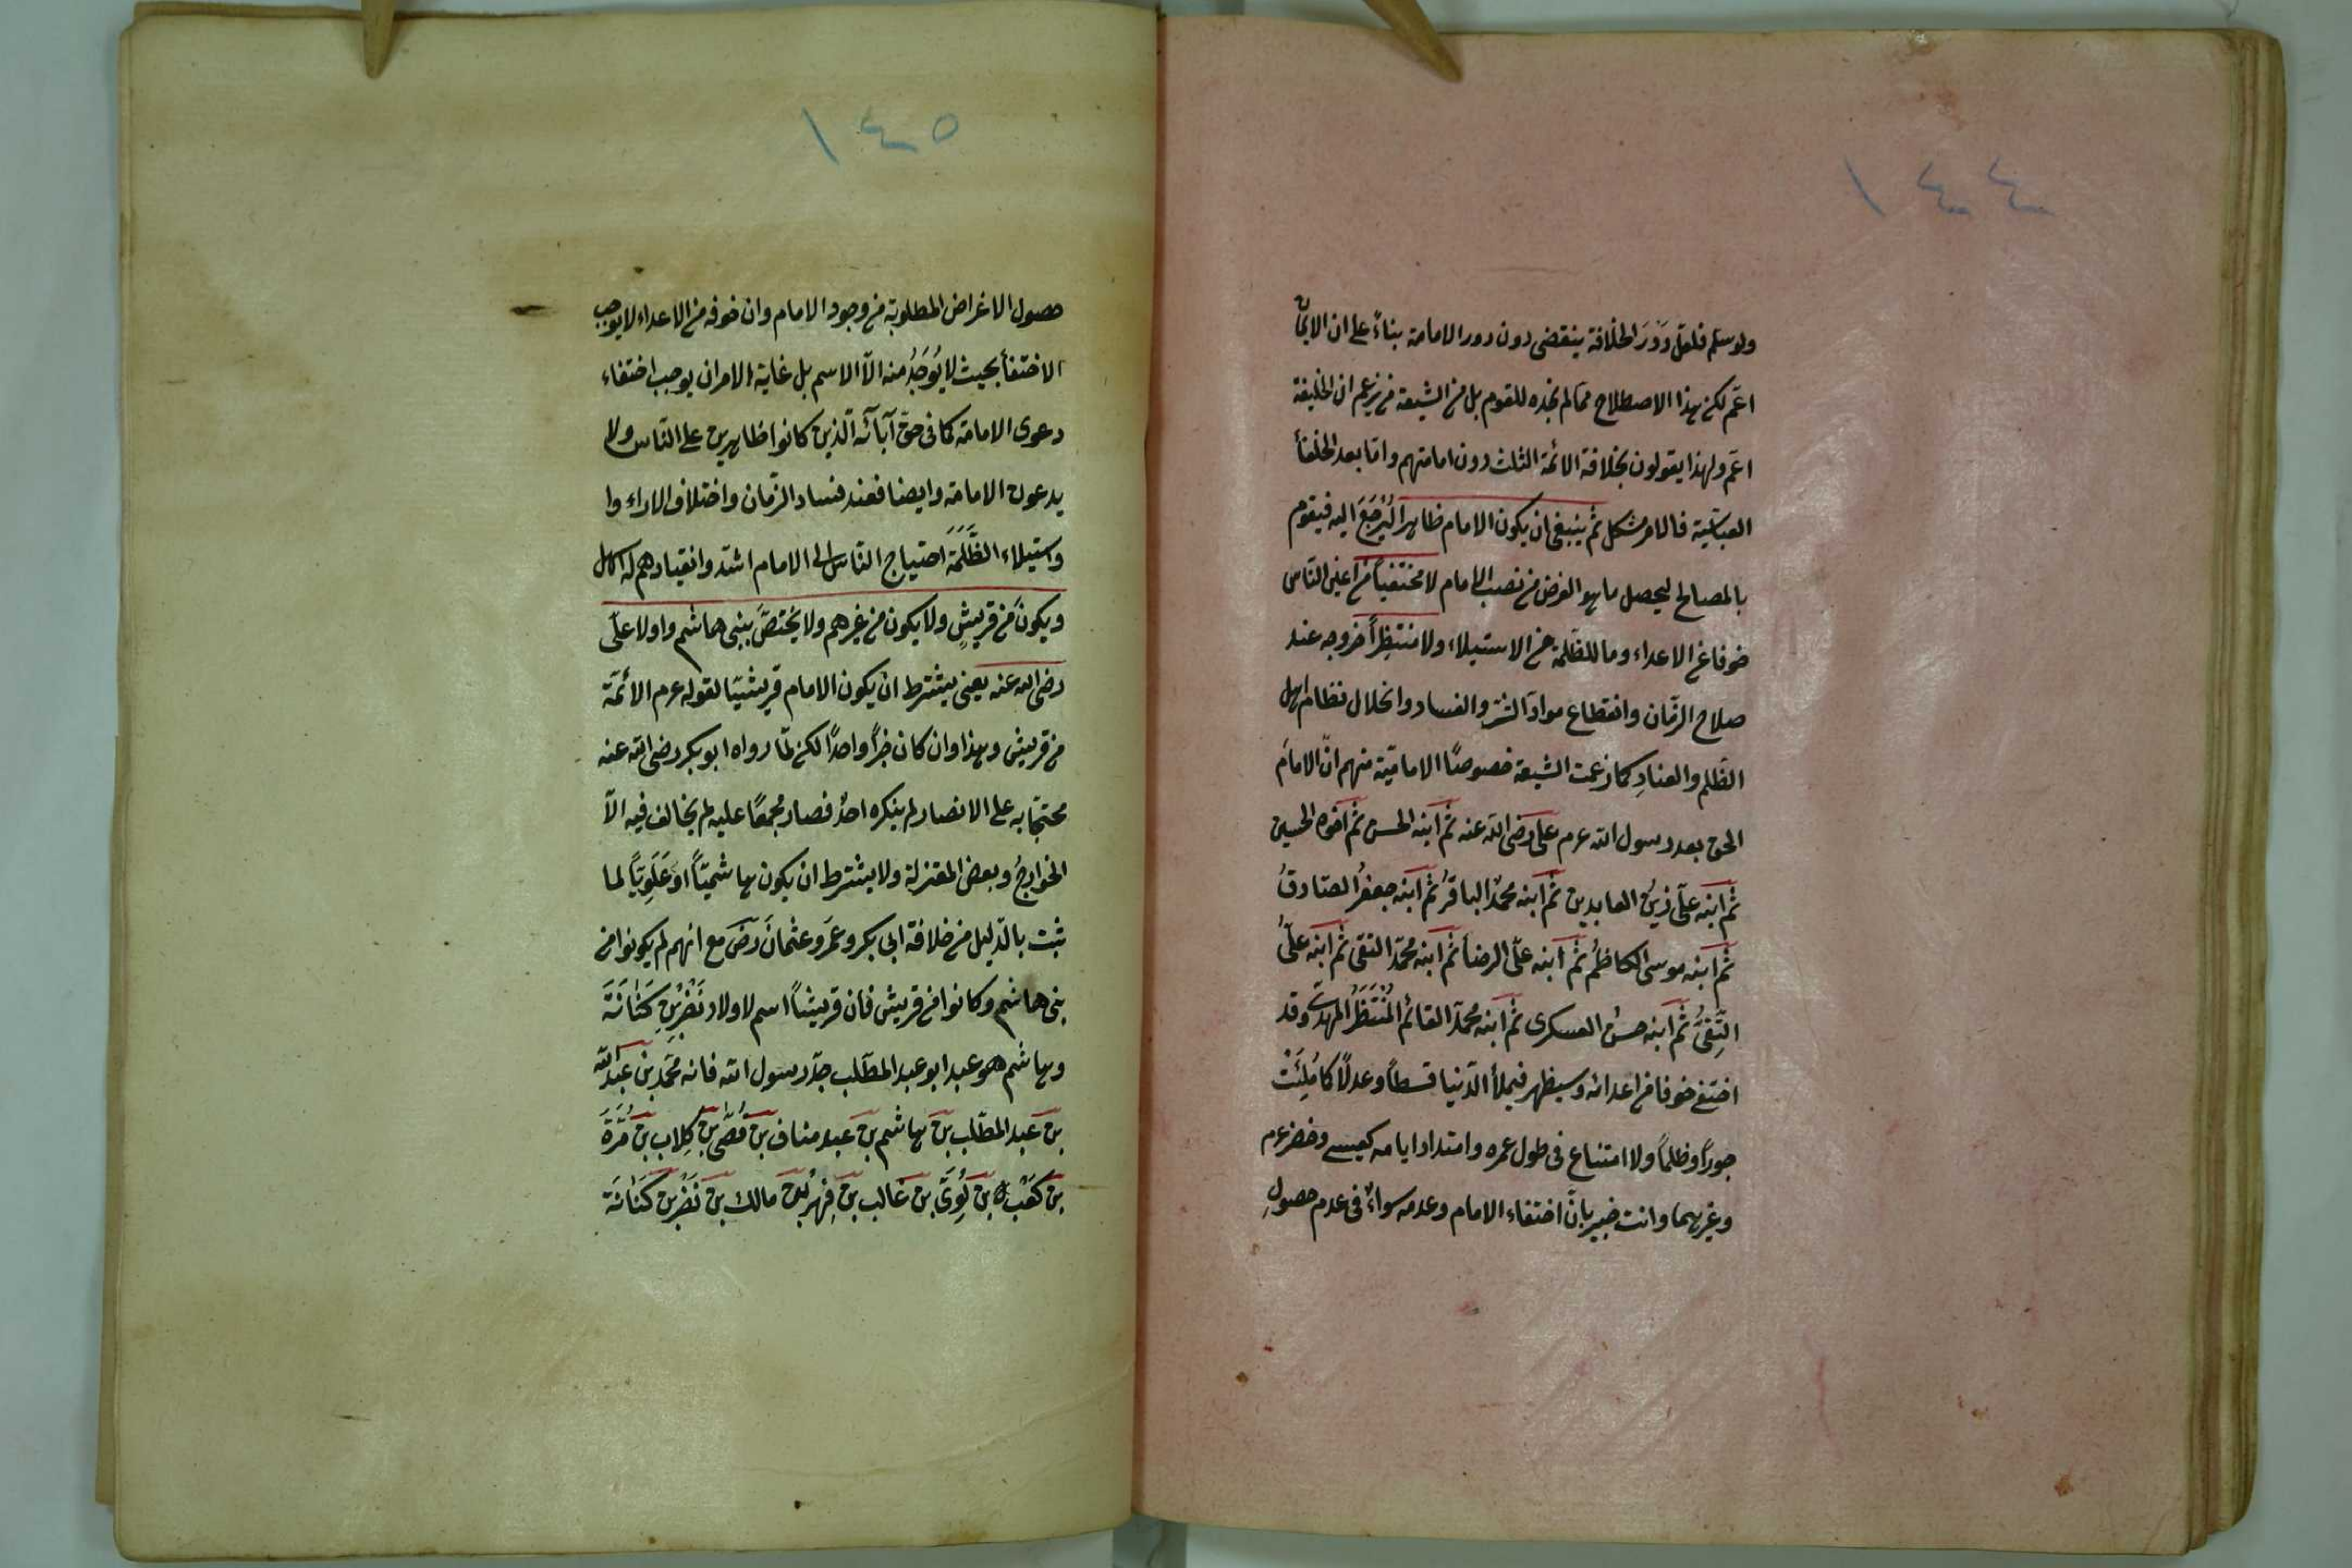 ١٤٤
ولو سلم فلعل دَوْرَ الخلافة ينقضى دون دور الامامة بناءً على ان الامامة
اعم لكن هذا الاصطلاح مما لم نجده للقوم بل من الشيعة من يزعم ان الخليفة
اعم ولهذا يقولون بخلافة الائمة الثلث دون امامتهم واما بعد الخلفأ
العباسية فالامر مشكل ثم ينبغى ان يكون الامام ظاهرا لِيُرْجَعَ اليه فيقوم
بالمصالح ليحصل ما هو الغرض من نصب الامام لا مختفيا من اعين الناس
خوفا من الاعداء وما للظلمة من الاستيلاء ولا منتظِراً خروجه عند
صلاح الزّمان وانقطاع موادّ الشّر والفساد وانحلال نظام اهل
الظّلم والعنادِ كما زعمت الشيعة خصوصًا الاماميّة منهم انّ الامامَ
الحق بعد رسول الله عرم على رضى الله عنه ثم ابنه الحسن ثم اخوه الحسين
ثم ابنه علىّ زينُ العابدين ثم ابنه محمدٌ الباقرُ ثم ابنه جعفرُ الصّادقُ
ثم ابنه موسى الكاظمُ ثم ابنه علىّ الرضأ ثم ابنه محمّد التقى ثم ابنه علىٌّ
النّقىُّ ثم ابنه حسنُ العسكرى ثم ابنه محمدٌ القائم المُنْتَظَرُ المهدىّ وقد
اختفى خوفا من اعدائه وسيظهر فيملأ الدّنيا قسطاً وعدلًا كما مُلِئَتْ
جوراً وظلماً ولا امتناع فى طول عمره وامتداد ايامه كعيسى وخضر عم
وغيرهما وانت خبير بانّ اختفاء الامام وعدمه سواءٌ فى عدم حصولِ
١٤٥
حصول الاغراض المطلوبة من وجود الامام وان خوفه من الاعداء لا يوجب
الاختفأ بحيث لا يُوْجَدُ منه الّا الاسم بل غاية الامر ان يوجب اختفاء
دعوى الامامة كما فى حق آبائه الّذين كانوا ظاهرين على النّاس ولا
يدعون الامامة وايضا فعند فساد الزّمان واختلاف الاراء وا
واستيلاء الظَّلَمَة احتياج النّاس الى الامام اشدّ وانقيادهم له اسهل
ويكونَ من قريشٍ ولا يكون من غيرهم ولا يَخْتصَّ ببنى هاشم واولا علىّ
رضى الله عنه يعنى يشترط ان يكون الامام قريشيّا لقوله عرم الأئمّة
من قريش وهذا وان كان خبراً واحدًا لكن لمّا رواه ابو بكر رضى الله عنه
محتجّا به على الانصار لم ينكره احدٌ فصار مجمعًا عليه لم يخالف فيه الّا
الخوارجُ وبعض المعتزلة ولا يشترط ان يكون هاشميّاً او عَلَوِيّاً لما
ثبت بالدّليل من خلافة ابى بكر وعمَر وعثمانَ رضَ مع انهم لم يكونوا من
بنى هاشم وكانوا من قريش فان قريشاً اسم لاولاد نَضْرِ بْنِ كَنَانَةَ
وهاشم هو عبد ابو عبد المطّلب جدّ رسول الله فانه محمّد بن عبد الله
بن عبد المطّلب بن هاشم بن عبد مناف بن قُصَىّ بن كِلاب بن مُرَّةَ
بن كَعْب بن لُؤَىّ بن غالب بن فِهْر بن مالك بن نَضْر بن كَنَانَة